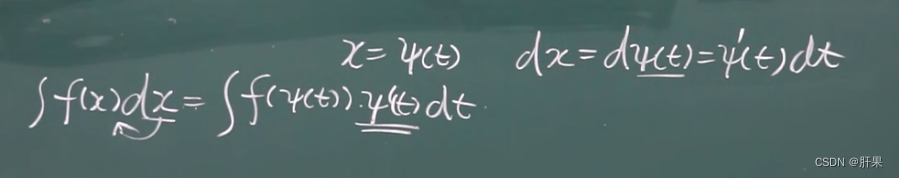 x = ψ(t) dx = dψ(t) = ψ'(t)dt
∫f(x)dx = ∫f(ψ(t))·ψ'(t)dt.
CSDN @肝果